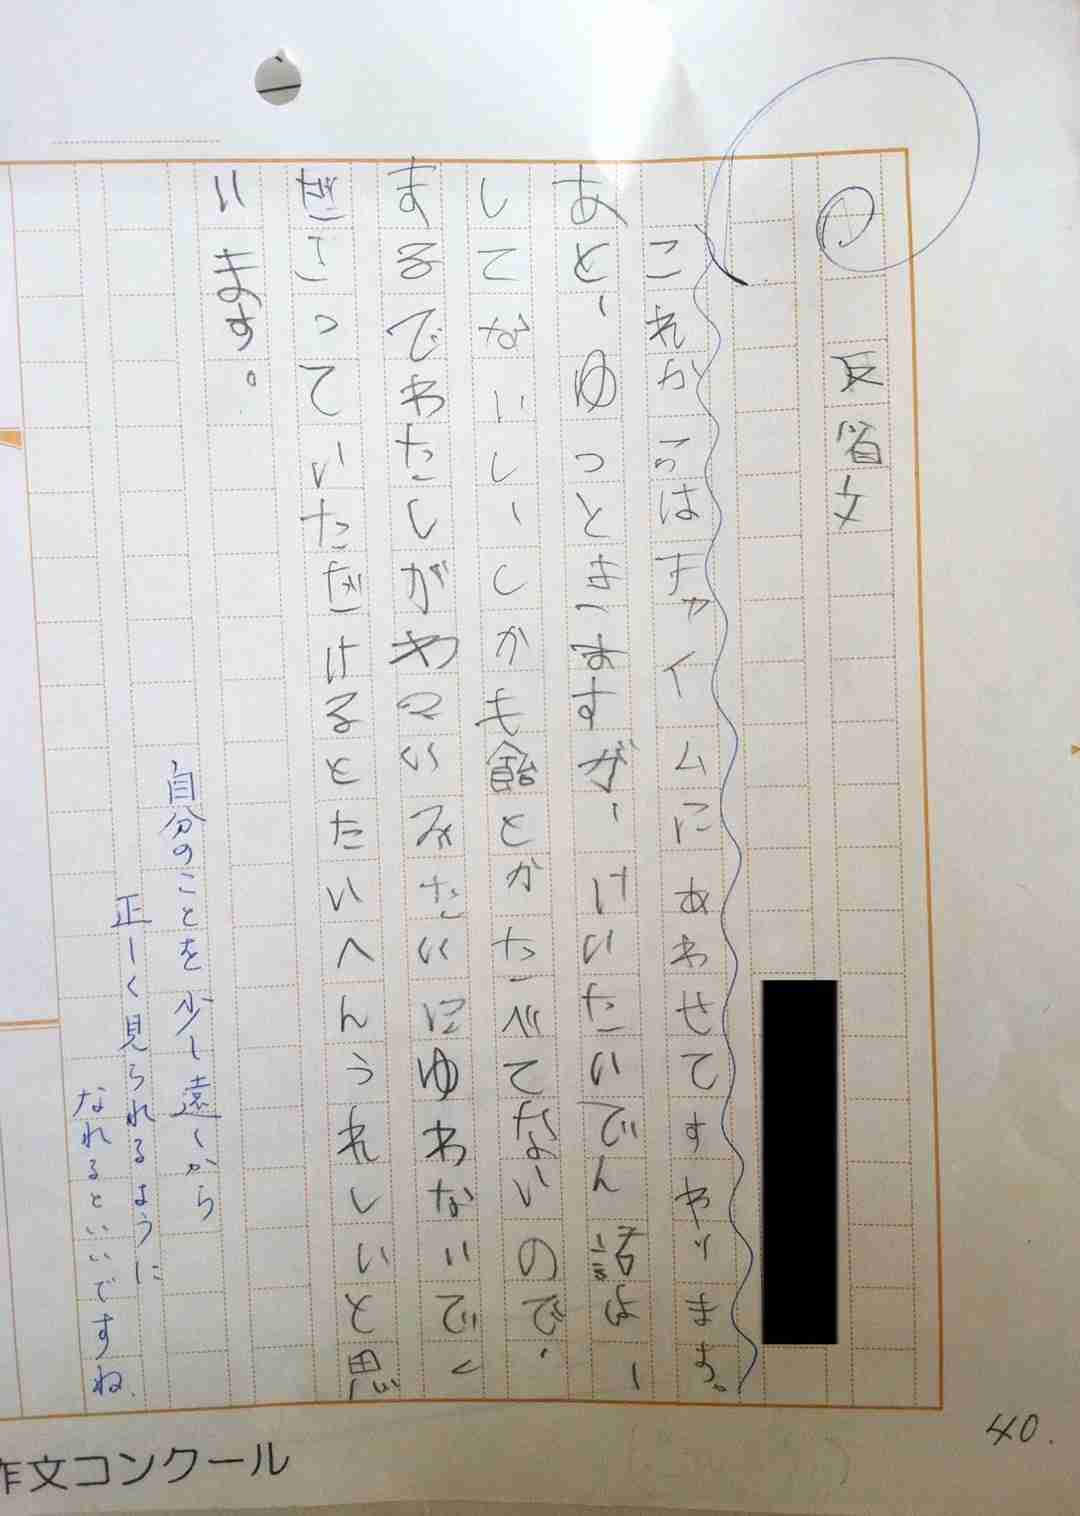 反省文
これからはチャイムにあわせてすわります。
あと、ゆっときますが、けいたいでん話は、
してないし、しかも飴とかたべてないので、
まるでわたしがわるいみたいにゆわないでく
ださっていただけるとたいへんうれしいと思
います。
自分のことを少し遠くから
正しく見られるように
なれるといいですね.
40.
作文コンクール